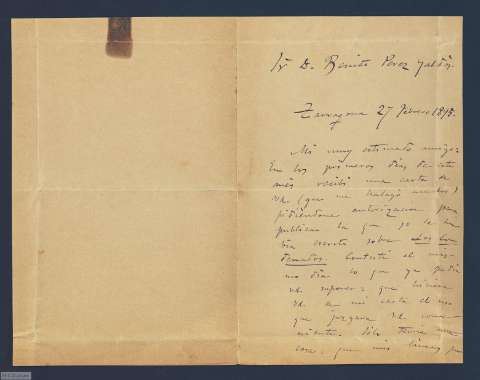 Sr. D. Benito Perez Galdós.
Zaragoza 27 febrero 1895.
Mi muy estimado amigo:
En los primeros días de este
mes recibí una carta de
Vd. (que me halagó mucho)
pidiéndome autorización para
publicar la que yo le ha
bía escrito sobre Los Con
denados. Contesté el mis
mo día lo que ya podía
Vd. suponer: que hiciera
Vd. de mi carta el uso
que juzgara
niente. Sólo
que mis líneas